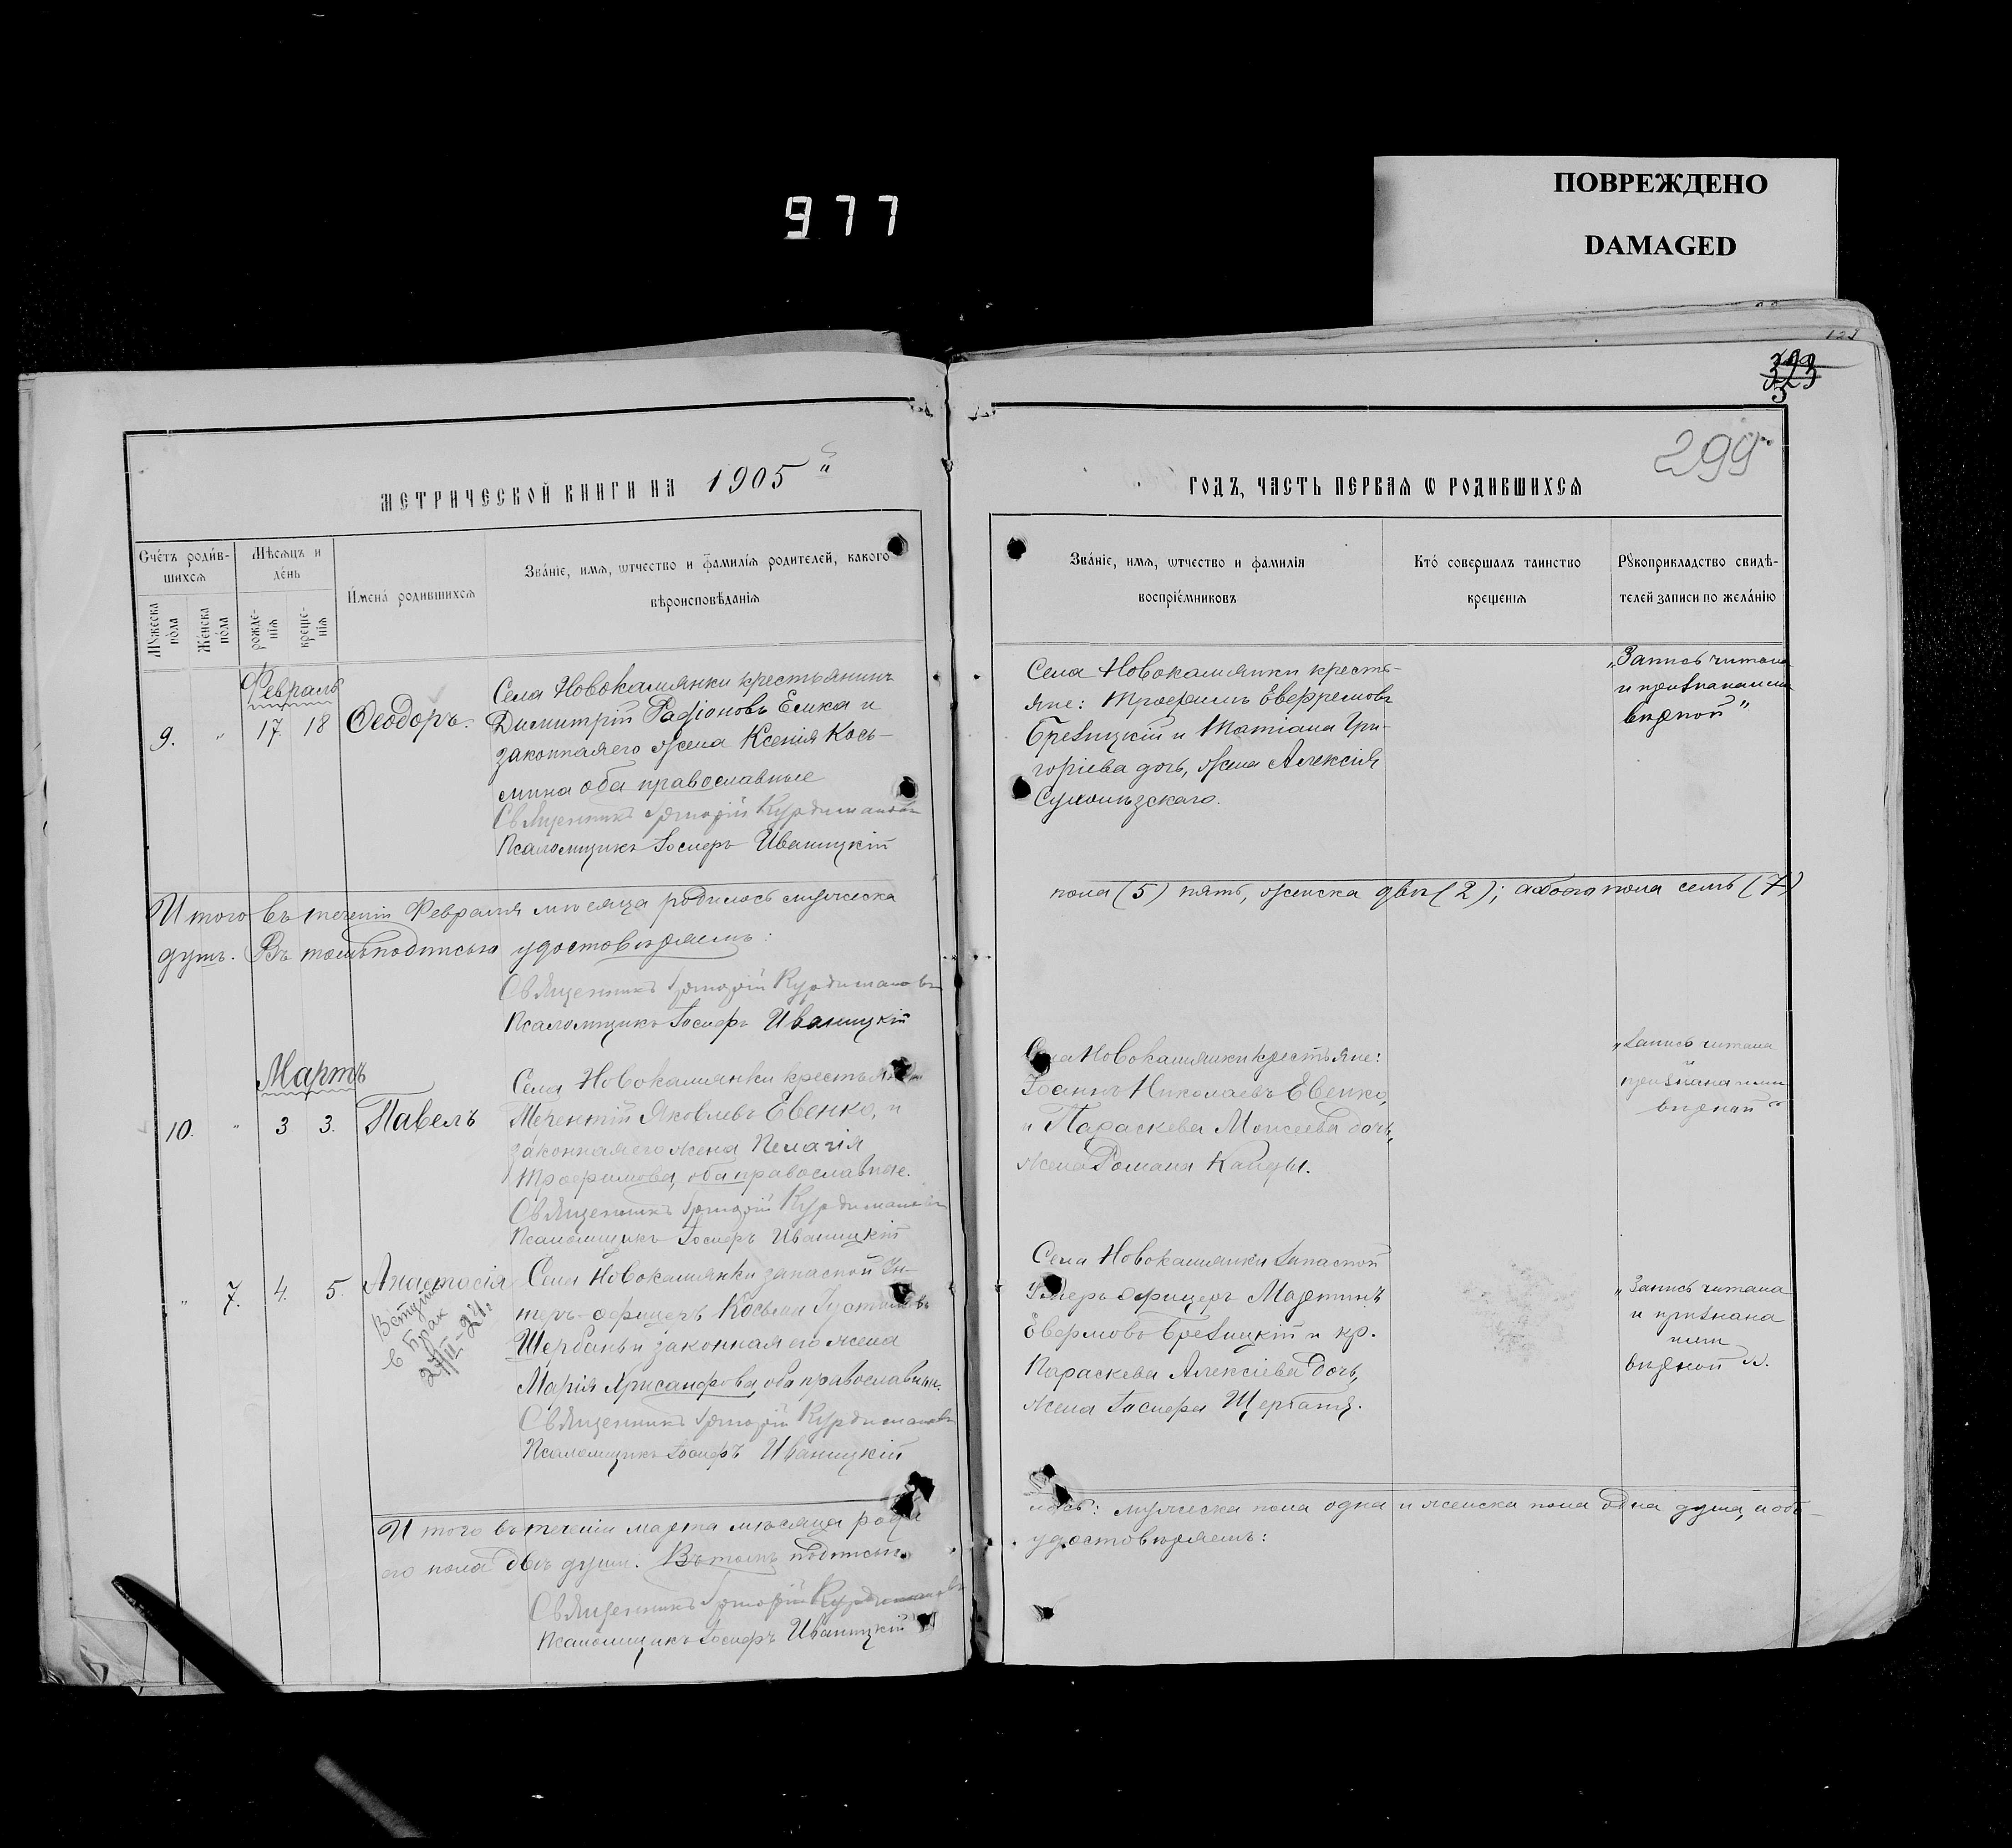 977
ПОВРЕЖДЕНО
DAMAGED
323
5
299
МЕТРИЧЕСКОЙ КНИГИ НА 1905
ГОДЪ, ЧАСТЬ ПЕРВАЯ Ѡ РОДИВШИХСЯ
Сче́тъ роди́в-
шихся
Мѣсяцъ и
де́нь
И҆мена́ родившихся
Зва́нїе, имя, ѡтчество и фамилїя родителей, какого
вѣроисповѣданїя
Мужеска по́ла
Же́нска по́ла
рожде-
нїя
креще-
нїя
Зва́нїе, имя, ѡтчество и фамилїя
воспрїе́мниковъ
Кто́ совершалъ таинство
крещенїя
Рꙋкоприкладство свидѣ-
телей записи по жела́нїю
Февраль
9. " 17. 18 Ѳеодоръ.
Села Новокамянки крестьянинъ
Димитрій Радіоновъ Емка и
законная его жена Ксенія Кось-
мина оба православные
Священникъ Григорій Курдимановъ
Псаломщикъ Іосифъ Иваницкій
Села Новокамянки кресть-
яне: Трофимъ Евфремовъ
Брезицкій и Татіана Гри-
горіева дочь, жена Алексія
"Запись читана
и признана
вѣрной"
Итого въ теченіи Февраля мѣсяца родилось мужеска
пола (5) пять, женска двѣ (2); а обоего пола семь (7)
душъ. Въ томъ подписью удостовѣряемъ:
Священникъ Григорій Курдимановъ
Псаломщикъ Іосифъ Иваницкій
Мартъ
10. " 3 3. Павелъ
Села Новокамянки крестьянинъ
Яковлевъ Евенко, и
законная его жена Пелагія
Трофимова, оба православные.
Священникъ Григорій Курдимановъ
Псаломщикъ Іосифъ Иваницкій
Села Новокамянки крестьяне:
Іоаннъ Николаевъ Евенко,
и Параскева Моисеева дочь,
жена Романа
"Запись читана
и признана ими
вѣрной"
" 7. 4. 5. Анастасія
Вступ.
в брак
27/II-24г.
Села Новокамянки запасной Ун-
теръ-офицеръ Косьма
Щербань и законная его жена
Марія Хрисанфова, оба православные.
Священникъ Григорій Курдимановъ
Псаломщикъ Іосифъ Иваницкій
Села Новокамянки запасной
Унтеръ-офицеръ Мартинъ
Брезицкій и кр.
Параскева Алексіева дочь,
жена Іосифа Щербаня.
"Запись читана
и признана
ими
вѣрной".
Итого въ теченіи марта мѣсяца роди
лось: мужеска пола одна и женска пола одна душа, а обо-
его пола двѣ души. Въ томъ подписью
удостовѣряемъ:
Священникъ Григорій Курдимановъ
Псаломщикъ Іосифъ Иваницкій